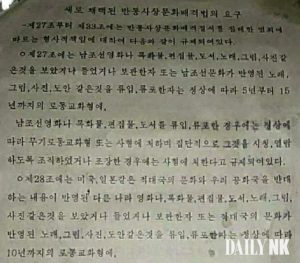 새로 채택된 반동사상문화배격법의 요구
-제27조부터 제33조에는 반동사상문화배격질서를 집행한 범죄에
따르는 형사적책임에 대하여 다음과 같이 규제되여있다.
○제27조에는 남조선영화나 록화물, 편집물, 도서, 노래, 그림, 사진
같은것을 보았거나 들었거나 보관한자 또는 남조선문화가 반영된 노래,
그림, 사진, 도안 같은것을 류입, 류포한자는 정상에 따라 5년부터 15
년까지의 로동교화형에,
남조선영화나 록화물, 편집물, 도서를 류입, 류포한 경우에는 정상에
따라 무기로동교화형 또는 사형에 처하며 집단적으로 그것을 시청, 열람
하도록 조직하였거나 조장한 경우에는 사형에 처한다고 규제되여있다.
○제28조에는 미국, 일본같은 적대국의 문화와 우리 공화국을 반대
하는 내용이 반영된 다른 나라 영화나, 록화물, 편집물, 도서, 노래, 그림,
사진같은것을 보았거나 들었거나 보관한자 또는 적대국의 문화가
반영된 노래, 그림, 사진, 도안같은것을 류입, 류포한자는 정상에 따라
10년까지의 로동교화형에,
DAILY NK